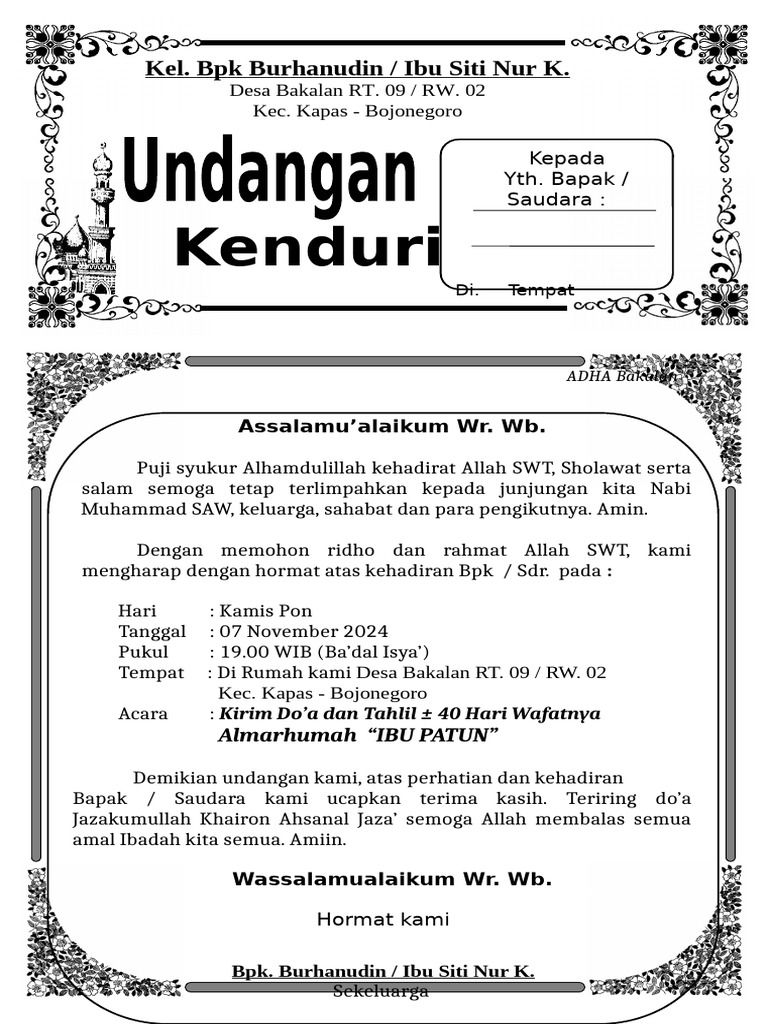 Kel. Bpk Burhanudin / Ibu Siti Nur K.
Desa Bakalan RT. 09 / RW. 02
Kec. Kapas - Bojonegoro
Undangan
Kenduri
Kepada
Yth. Bapak /
Saudara :
Di: Tempat
ADHA Bakalan
Assalamu’alaikum Wr. Wb.
Puji syukur Alhamdulillah kehadirat Allah SWT, Sholawat serta
salam semoga tetap terlimpahkan kepada junjungan kita Nabi
Muhammad SAW, keluarga, sahabat dan para pengikutnya. Amin.
Dengan memohon ridho dan rahmat Allah SWT, kami
mengharap dengan hormat atas kehadiran Bpk / Sdr. pada :
Hari : Kamis Pon
Tanggal : 07 November 2024
Pukul : 19.00 WIB (Ba’dal Isya’)
Tempat : Di Rumah kami Desa Bakalan RT. 09 / RW. 02
Kec. Kapas - Bojonegoro
Acara : Kirim Do’a dan Tahlil ± 40 Hari Wafatnya
Almarhumah “IBU PATUN”
Demikian undangan kami, atas perhatian dan kehadiran
Bapak / Saudara kami ucapkan terima kasih. Teriring do’a
Jazakumullah Khairon Ahsanal Jaza’ semoga Allah membalas semua
amal Ibadah kita semua. Amiin.
Wassalamualaikum Wr. Wb.
Hormat kami
Bpk. Burhanudin / Ibu Siti Nur K.
Sekeluarga